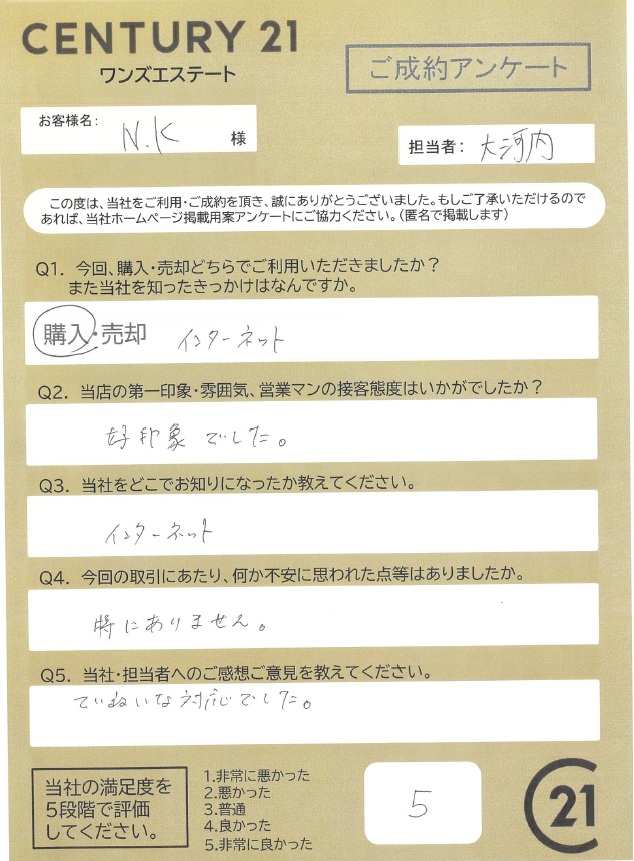 CENTURY 21
ワンズエステート
ご成約アンケート
お客様名:
N.K 様
担当者: 大河内
この度は、当社をご利用・ご成約を頂き、誠にありがとうございました。もしご了承いただけるので
あれば、当社ホームページ掲載用案アンケートにご協力ください。(匿名で掲載します)
Q1. 今回、購入・売却どちらでご利用いただきましたか?
また当社を知ったきっかけはなんですか。
購入・売却 インターネット
Q2. 当店の第一印象・雰囲気、営業マンの接客態度はいかがでしたか?
好印象でした。
Q3. 当社をどこでお知りになったか教えてください。
インターネット
Q4. 今回の取引にあたり、何か不安に思われた点等はありましたか。
特にありません。
Q5. 当社・担当者へのご感想ご意見を教えてください。
ていねいな対応でした。
当社の満足度を
5段階で評価
してください。
1.非常に悪かった
2.悪かった
3.普通
4.良かった
5.非常に良かった
5
21